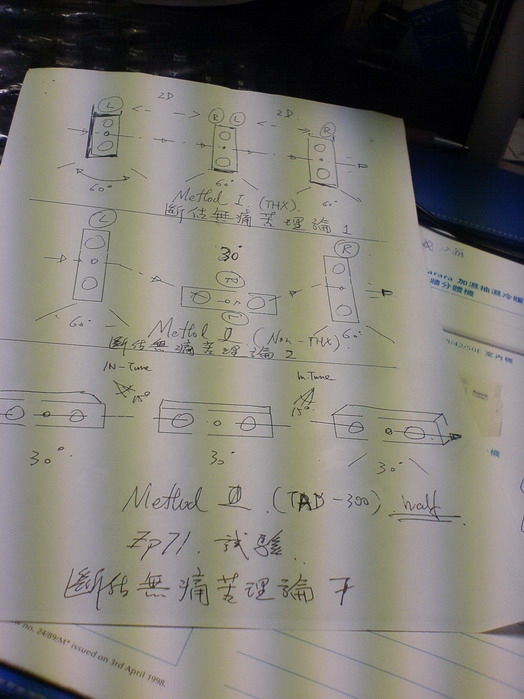 2D 2D
L R L R
60° 60° 60°
Method I (THX)
斷估無痛苦理論 1
L 30° R
60° 60°
Method II (Non-THX)
斷估無痛苦理論 2
IN-Tune In Tune
15° 15°
30° 30° 30°
Method III (TAD-300) half
試驗
斷估無痛苦理論
arara 加濕抽濕冷暖
牆分體機
5/42/50E 室內機
機
no. 24/89/M* issued on 3rd April 1998.